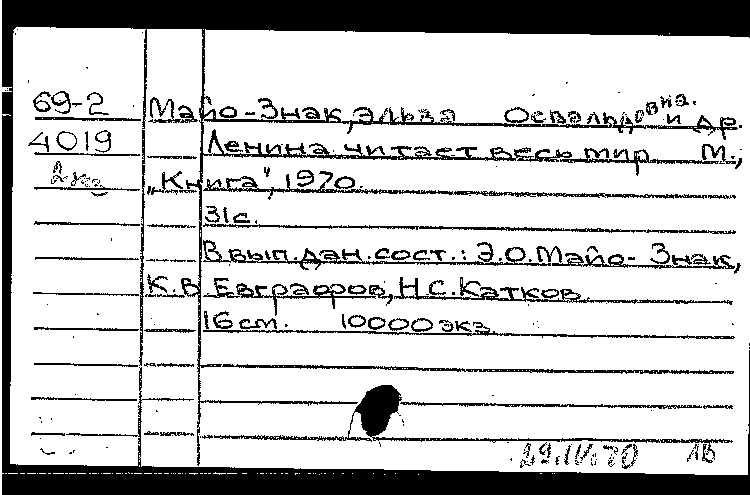 69-2 Майо-Знак, Эльза Освальдовна. и др.
4019 Ленина читает весь мир. М.,
2кз „Книга", 1970.
31с.
В вып. дан. сост.: Э.О. Майо-Знак,
К.В. Евграфов, Н.С. Катков.
16см. 10000 экз.
29.IV.70 ЛВ